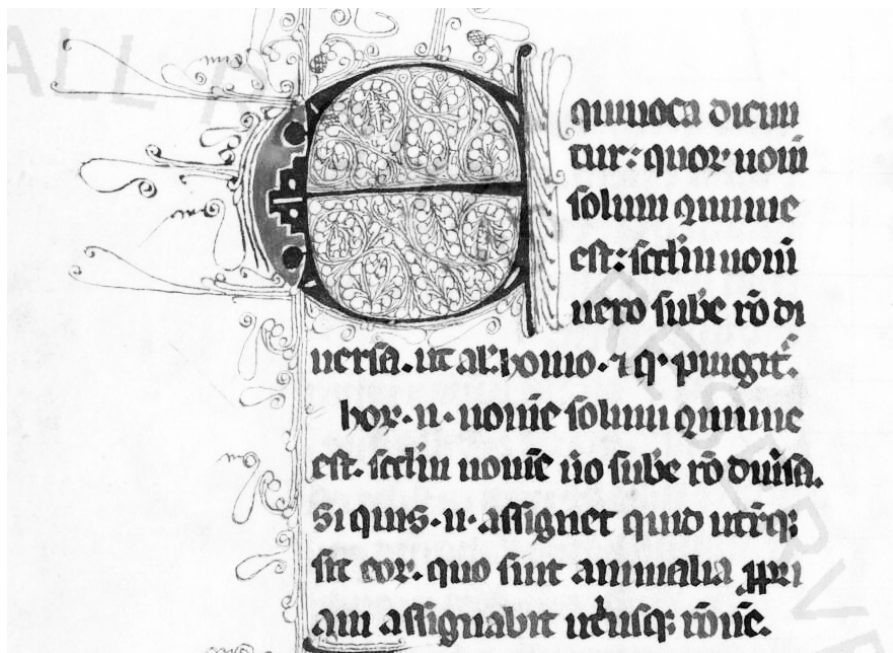 E quiuoca dicun
tur: quoꝝ nom̅
solum co̅mune
est: scd̅m nom̅
uero sub̅e ro̅ di
uersa. ut al̅. homo. ⁊ q̇. pingit᷑.
hoꝝ. u. nom̅e solum co̅mune
est. scd̅m nom̅e u̅o sub̅e ro̅ diu̅sa.
Si quis. u. assignet quid ut̅rq;
sit eoꝝ. quo sint animalia ꝓpri
am assignabit ut̅usq; ro̅ne̅.
ALL R
RESERVE